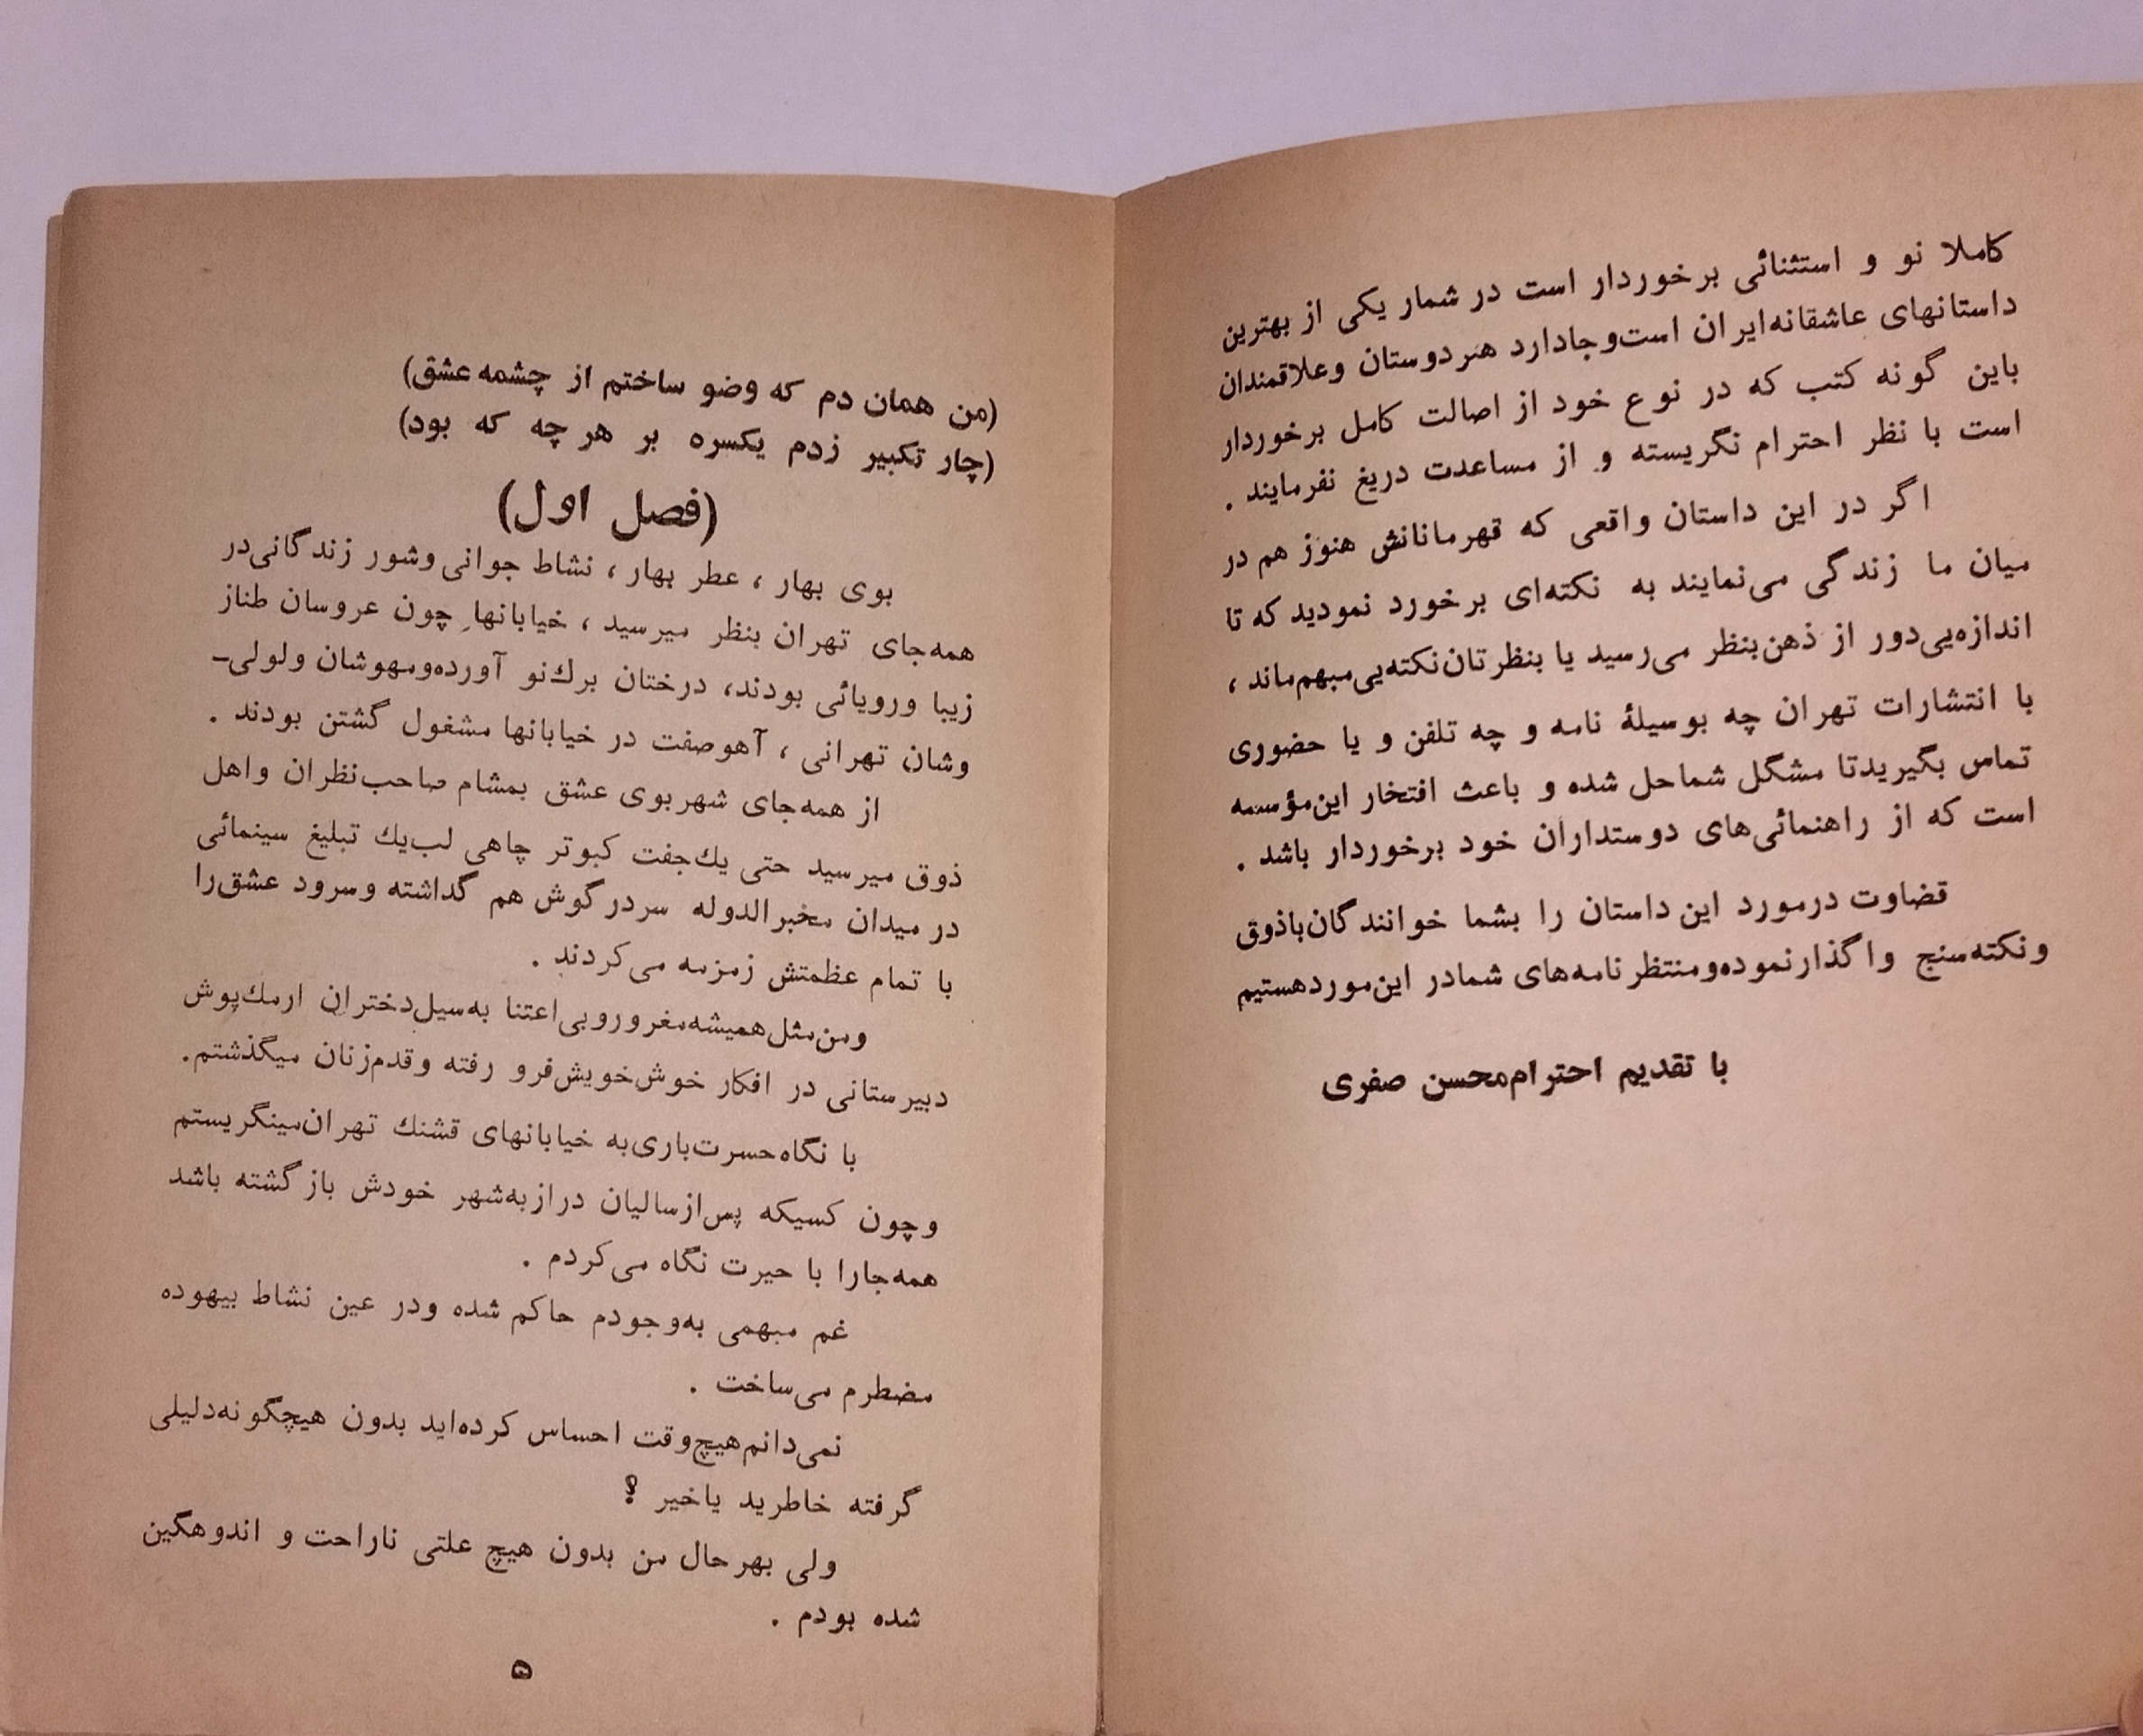 کاملا نو و استثنائی برخوردار است در شمار یکی از بهترین
داستانهای عاشقانه‌ایران است‌وجادارد هنردوستان وعلاقمندان
باین گونه کتب که در نوع خود از اصالت کامل برخوردار
است با نظر احترام نگریسته و از مساعدت دریغ نفرمایند .
اگر در این داستان واقعی که قهرمانانش هنوز هم در
میان ما زندگی می‌نمایند به نکته‌ای برخورد نمودید که تا
اندازه‌یی‌دور از ذهن‌بنظر می‌رسید یا بنظرتان‌نکته‌یی‌مبهم‌ماند ،
با انتشارات تهران چه بوسیلهٔ نامه و چه تلفن و یا حضوری
تماس بگیریدتا مشگل شماحل شده و باعث افتخار این‌مؤسسه
است که از راهنمائی‌های دوستداران خود برخوردار باشد .
قضاوت درمورد این داستان را بشما خوانندگان‌باذوق
ونکته‌سنج واگذارنموده‌ومنتظرنامه‌های شمادر این‌موردهستیم
با تقدیم احترام‌محسن صفری
(من همان دم که وضو ساختم از چشمه عشق)
(چار تکبیر زدم یکسره بر هرچه که بود)
(فصل اول)
بوی بهار ، عطر بهار ، نشاط جوانی وشور زندگانی‌در
همه‌جای تهران بنظر میرسید ، خیابانها چون عروسان طناز
زیبا ورویائی بودند، درختان برك‌نو آورده‌ومهوشان ولولی-
وشان تهرانی ، آهوصفت در خیابانها مشغول گشتن بودند .
از همه‌جای شهربوی عشق بمشام صاحب‌نظران واهل
ذوق میرسید حتی یك‌جفت کبوتر چاهی لب‌یك تبلیغ سینمائی
در میدان مخبرالدوله سردرگوش هم گداشته وسرود عشق‌را
با تمام عظمتش زمزمه می‌کردند .
ومن‌مثل‌همیشه‌مغروروبی‌اعتنا به‌سیل‌دختران ارمك‌پوش
دبیرستانی در افکار خوش‌خویش‌فرو رفته وقدم‌زنان میگذشتم.
با نگاه‌حسرت‌باری‌به خیابانهای قشنك تهران‌مینگریستم
وچون کسیکه پس‌ازسالیان درازبه‌شهر خودش بازگشته باشد
همه‌جارا با حیرت نگاه می‌کردم .
غم مبهمی به‌وجودم حاکم شده ودر عین نشاط بیهوده
مضطرم می‌ساخت .
نمی‌دانم‌هیچ‌وقت احساس کرده‌اید بدون هیچگونه‌دلیلی
گرفته خاطرید یاخیر ؟
ولی بهرحال من بدون هیچ علتی ناراحت و اندوهگین
شده بودم .
۵